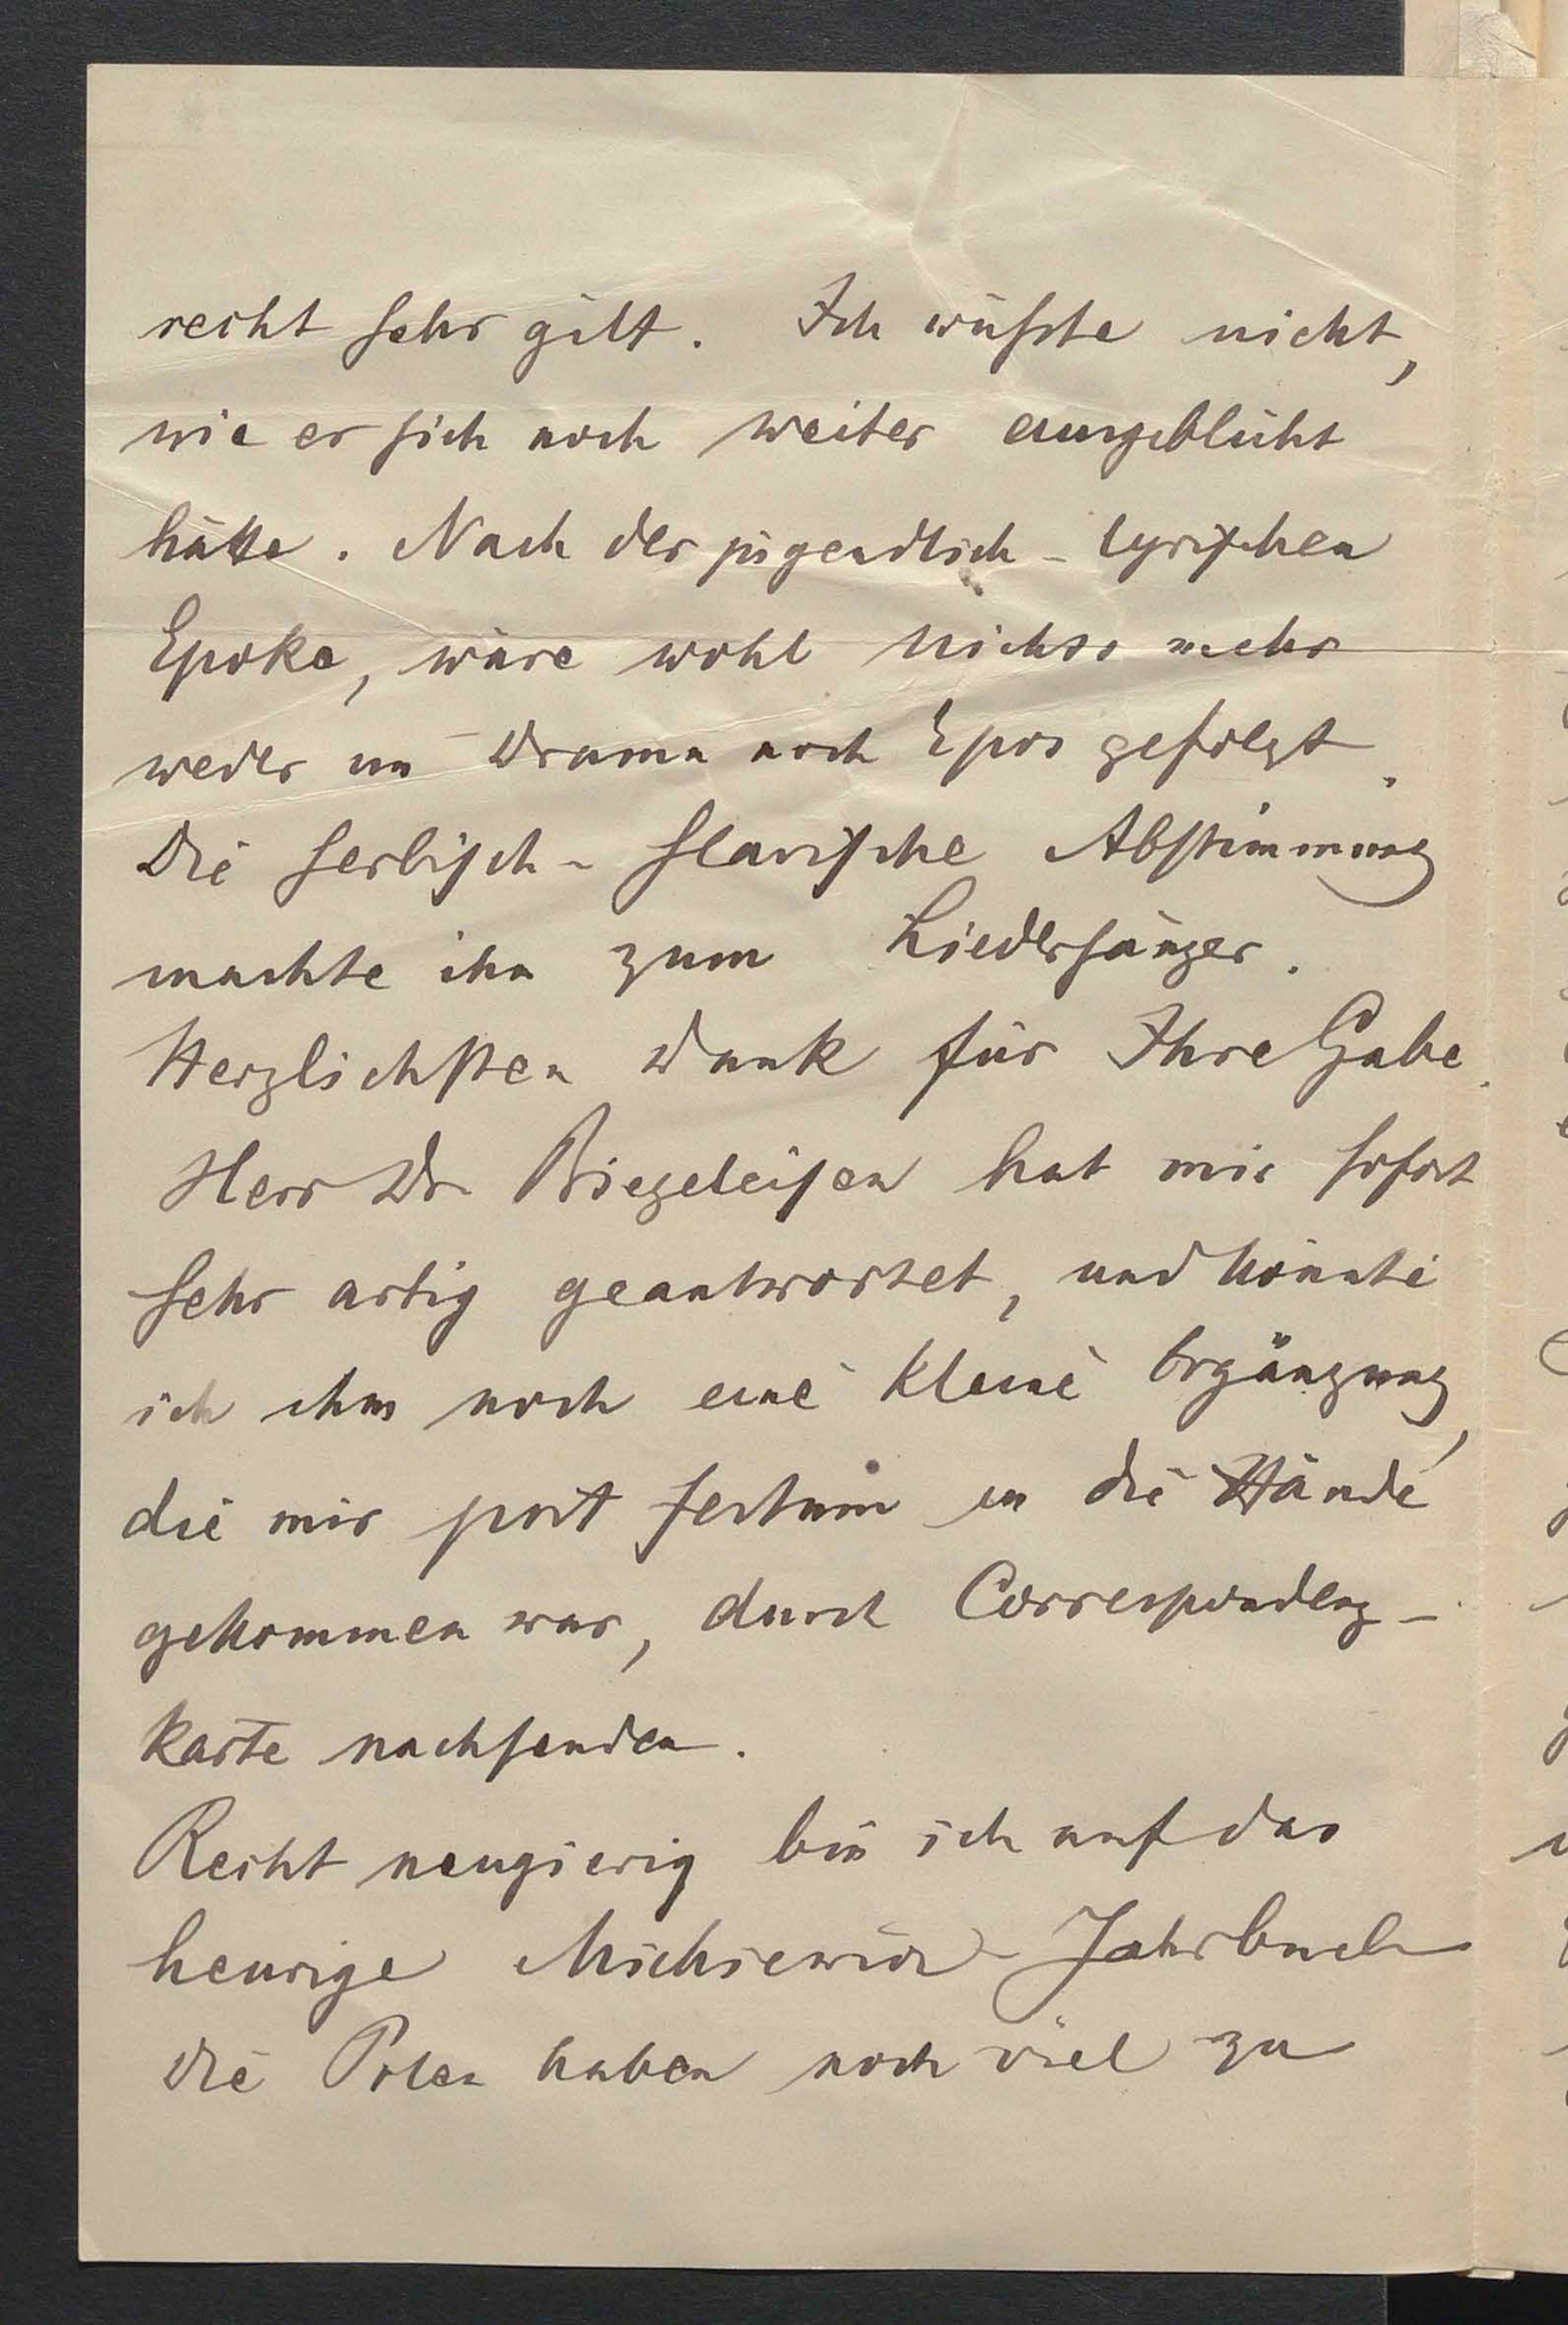 recht sehr gilt. Ich wüsste nicht,
wie er sich noch weiter ausgeblüht
hätte. Nach der jugendlich-lyrischen
Epoke, wäre wohl nichts mehr
weder im Drama noch Epos gefolgt.
Die serbisch-slavische Abstimmung
machte ihn zum Liedersänger.
Herzlichsten Dank für Ihre Gabe.
Herr Dr Biegeleisen hat mir sofort
sehr artig geantwortet, und konnte
ich ihm noch eine kleine Ergänzung,
die mir post festum in die Hände
gekommen war, durch Correspondenz-
karte nachsenden.
Recht neugierig bin ich auf das
heurige Mickiewicz-Jahrbuch
Die Polen haben noch viel zu